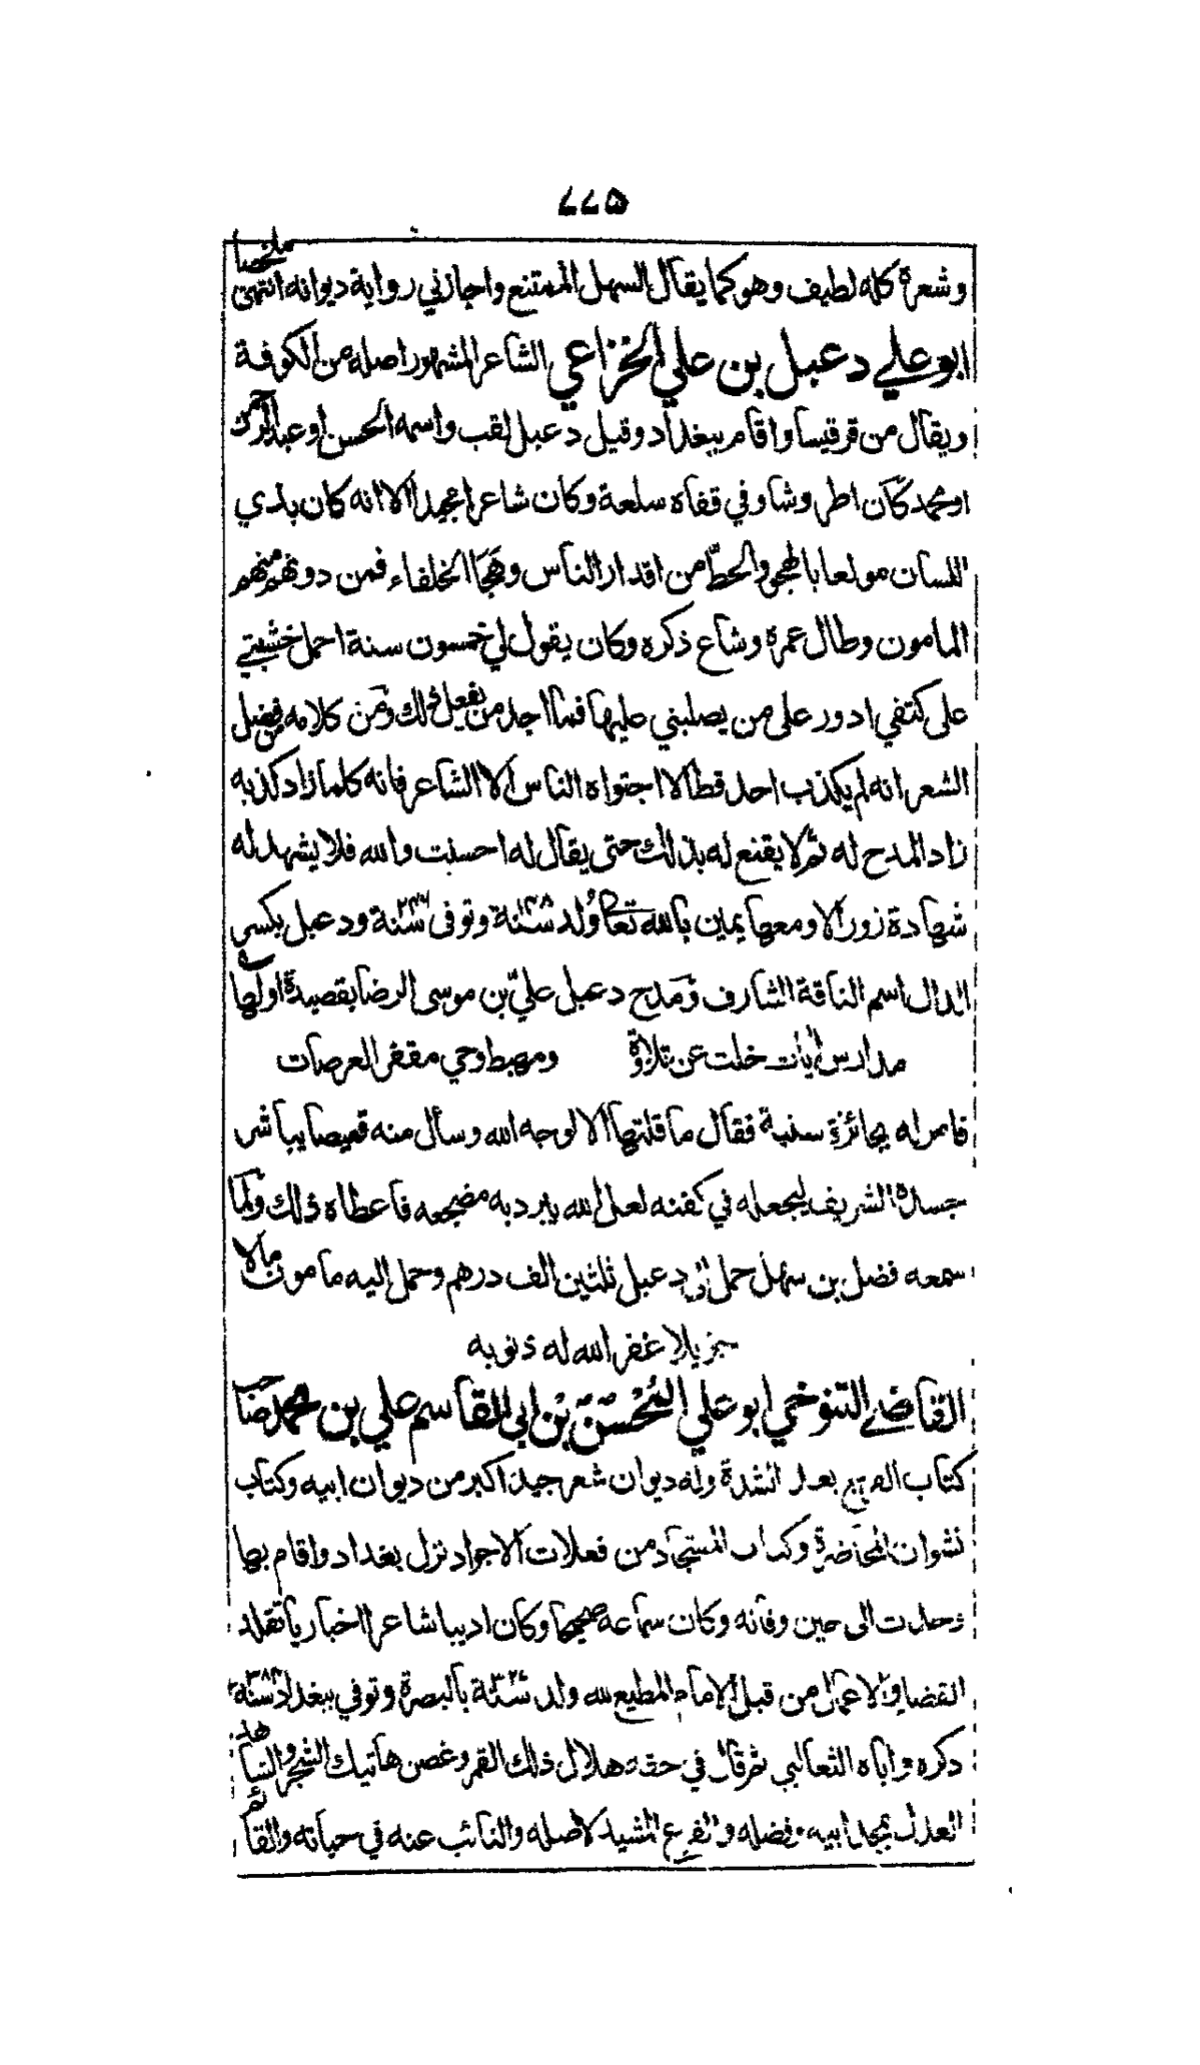 ٧٧٥
وشعره كله لطيف وهو كما يقال السهل الممتنع واجازني رواية ديوانه انتهى ملخصا
ابو علي دعبل بن علي الخزاعي الشاعر المشهور اصله من الكوفة
ويقال من قرقيسا واقام ببغداد وقيل دعبل لقب واسمه الحسن او عبد الرحمن
او محمد كان اطروشا وفي قفاه سلعة وكان شاعرا مجيدا الا انه كان بذي
اللسان مولعا بالهجو والحط من اقدار الناس وهجا الخلفاء فمن دونهم منهم
المامون وطال عمره وشاع ذكره وكان يقول لي خمسون سنة احمل خشبتي
على كتفي ادور على من يصلبني عليها فما اجد من يفعل ذلك ومن كلامه من فضل
الشعر انه لم يكذب احد قط الا اجتواه الناس الا الشاعر فانه كلما زاد كذبه
زاد المدح له ثم لا يقنع له بذلك حتى يقال له احسنت والله فلا يشهد له
شهادة زور الا ومعها يمين بالله تعالى ولد سنة ١٤٨ وتوفى سنة ٢٤٦ ودعبل بكسر
الدال اسم الناقة الشارف ومدح دعبل علي بن موسى الرضا بقصيدة اولها
مدارس ايات خلت عن تلاوة ومهبط وحي مقفر العرصات
فامر له بجائزة سنية فقال ما قلتها الا لوجه الله وسأل منه قميصا يباشر
جسده الشريف ليجعله في كفنه لعل الله يبرد به مضجعه فاعطاه ذلك ولما
سمعه فضل بن سهل حمل الى دعبل ثلثين الف درهم وحمل اليه مامون مالا
جزيلا غفر الله له ذنوبه
القاضي التنوخي ابو علي المحسن بن ابي القاسم علي بن محمد صاحب
كتاب الفرج بعد الشدة وله ديوان شعر جيد اكبر من ديوان ابيه وكتاب
نشوان المحاضرة وكتاب المستجاد من فعلات الاجواد نزل بغداد واقام بها
وحدث الى حين وفاته وكان سماعه صحيحا وكان اديبا شاعرا اخباريا تقلد
القضا والاعمال من قبل الامام المطيع لله ولد سنة بالبصرة وتوفي ببغداد سنة ٣٨٤
ذكره واباه الثعالبي ثم قال في حقه هلال ذلك القمر وغصن هاتيك الشجر والشاهد
العدل بمجد ابيه وفضله والفرع المشيد لاصله والنائب عنه في حياته والقائم